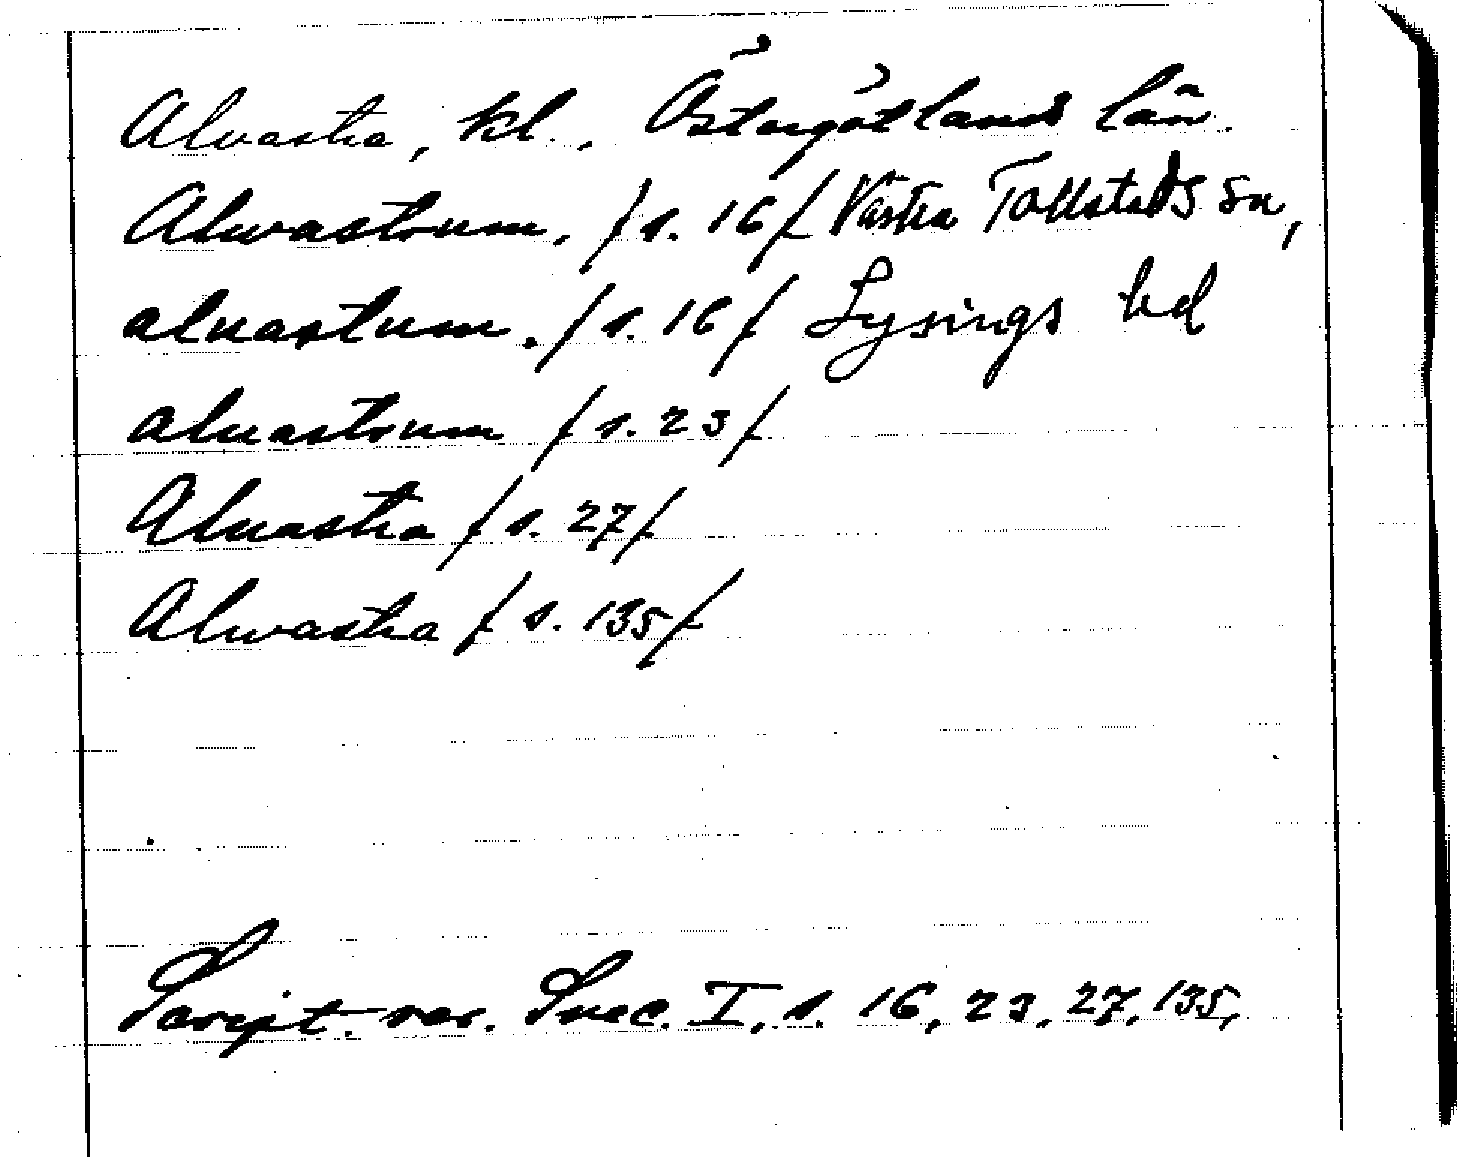 Alvastra, kl., Östergötlands län.
Alwastrum, / s. 16 / Västra Tollstads sn,
alvastum. / s. 16 / Lysings hd
alvastrum / s. 23 /
Alvastra / s. 27 /
Alwastra / s. 135 /
Script. rer. Svec. I, s. 16, 23, 27, 135,